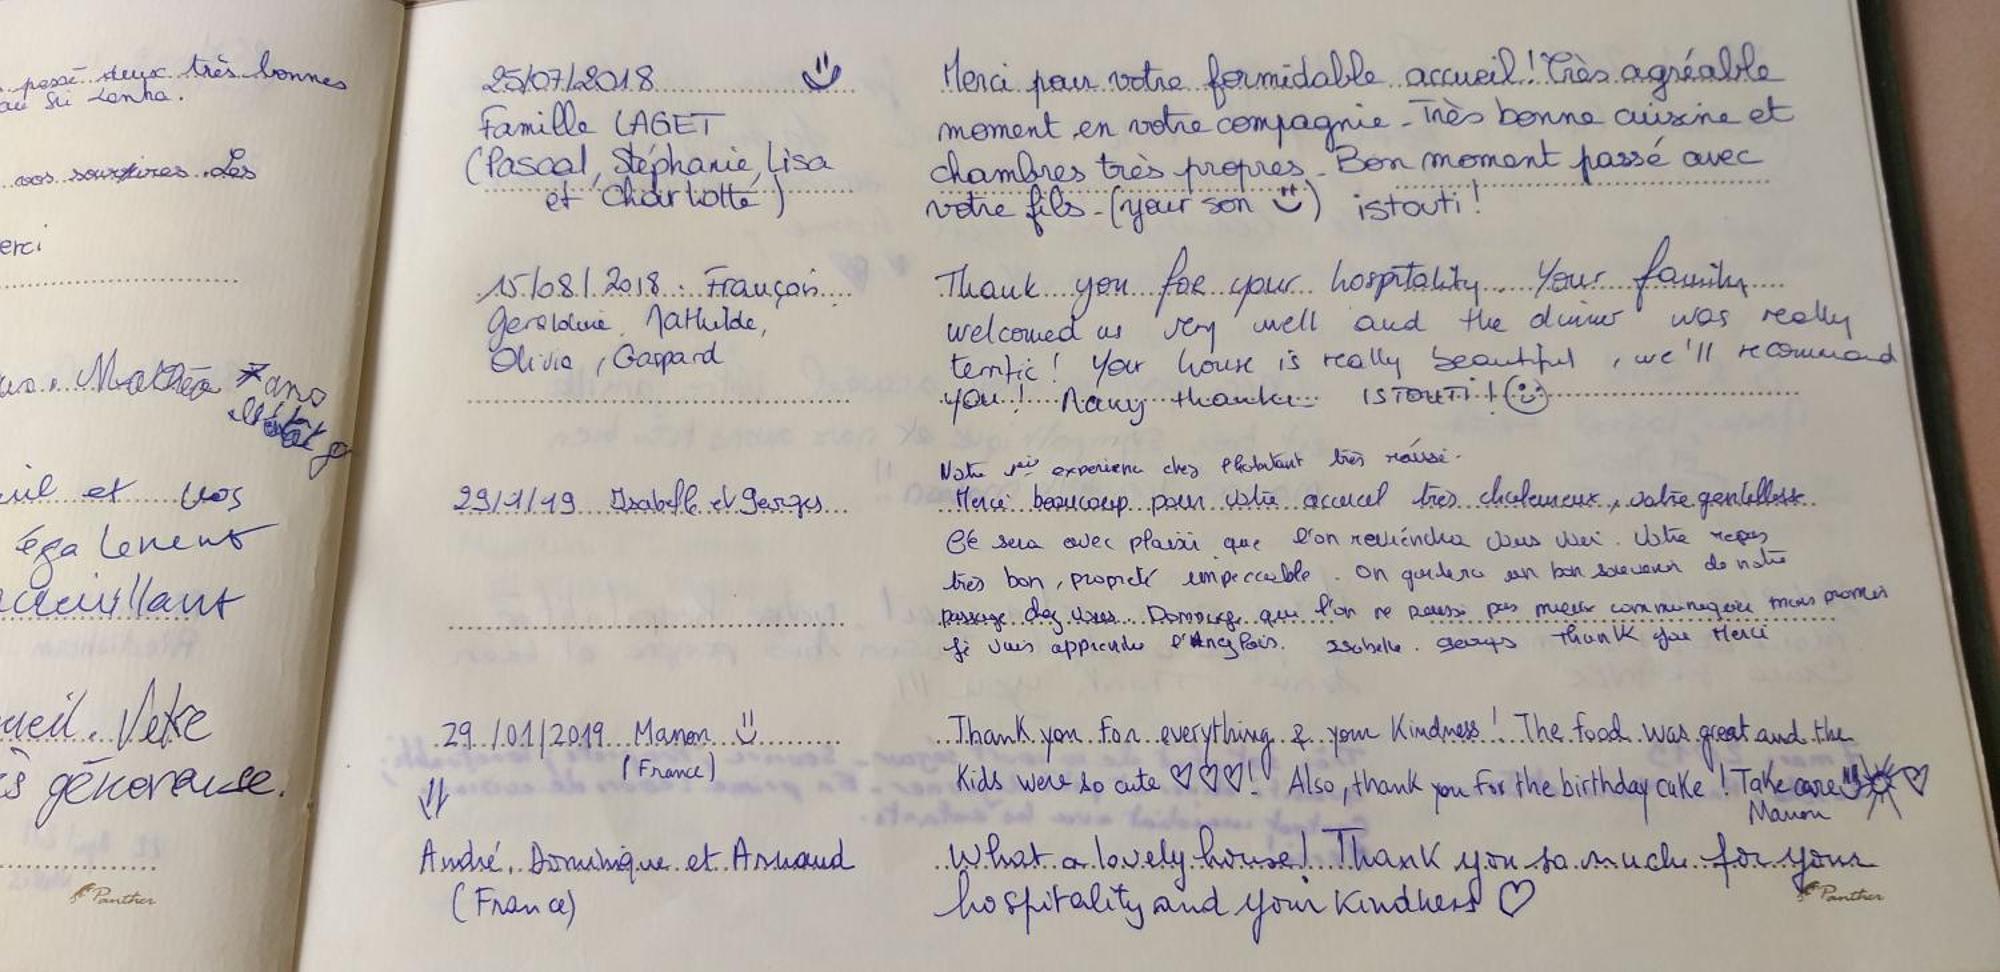 passé deux très bonnes
au Sri Lanka.
vos sourires. Les
erci
Mathéo 7 ans
et vos
également
accueillant
ueil. Votre
s généreuse.
Panther
25/07/2018
Famille LAGET
(Pascal, Stéphanie, Lisa
et Charlotte)
Merci pour votre formidable accueil! Très agréable
moment en votre compagnie - Très bonne cuisine et
chambres très propres - Bon moment passé avec
votre fils - (your son) istouti!
15/08/2018 : François
Geraldine, Mathilde,
Olivia, Gaspard
Thank you for your hospitality. Your family
welcomed us very well and the dinner was really
terrific! Your house is really beautiful, we'll recommand
you! Many thanks ISTOUTI!
29/1/19 Isabelle et Georges
Notre 1ère experience chez l'habitant très réussie.
Merci beaucoup pour votre accueil très chaleureux, votre gentillesse
Ce sera avec plaisir que l'on reviendra vous voir. Votre repas
très bon, propreté impeccable. On gardera un bon souvenir de notre
passage chez vous. Dommage que l'on ne puisse pas mieux communiquer mais promis
je vais apprendre l'Anglais. Isabelle. Georges Thank you Merci
29/01/2019 Manon
(France)
Thank you for everything & your kindness! The food was great and the
kids were so cute ♡♡♡! Also, thank you for the birthday cake! Take care ♡
Manon
André, Dominique et Arnaud
(France)
What a lovely house! Thank you so much for your
hospitality and your kindness ♡
Panther